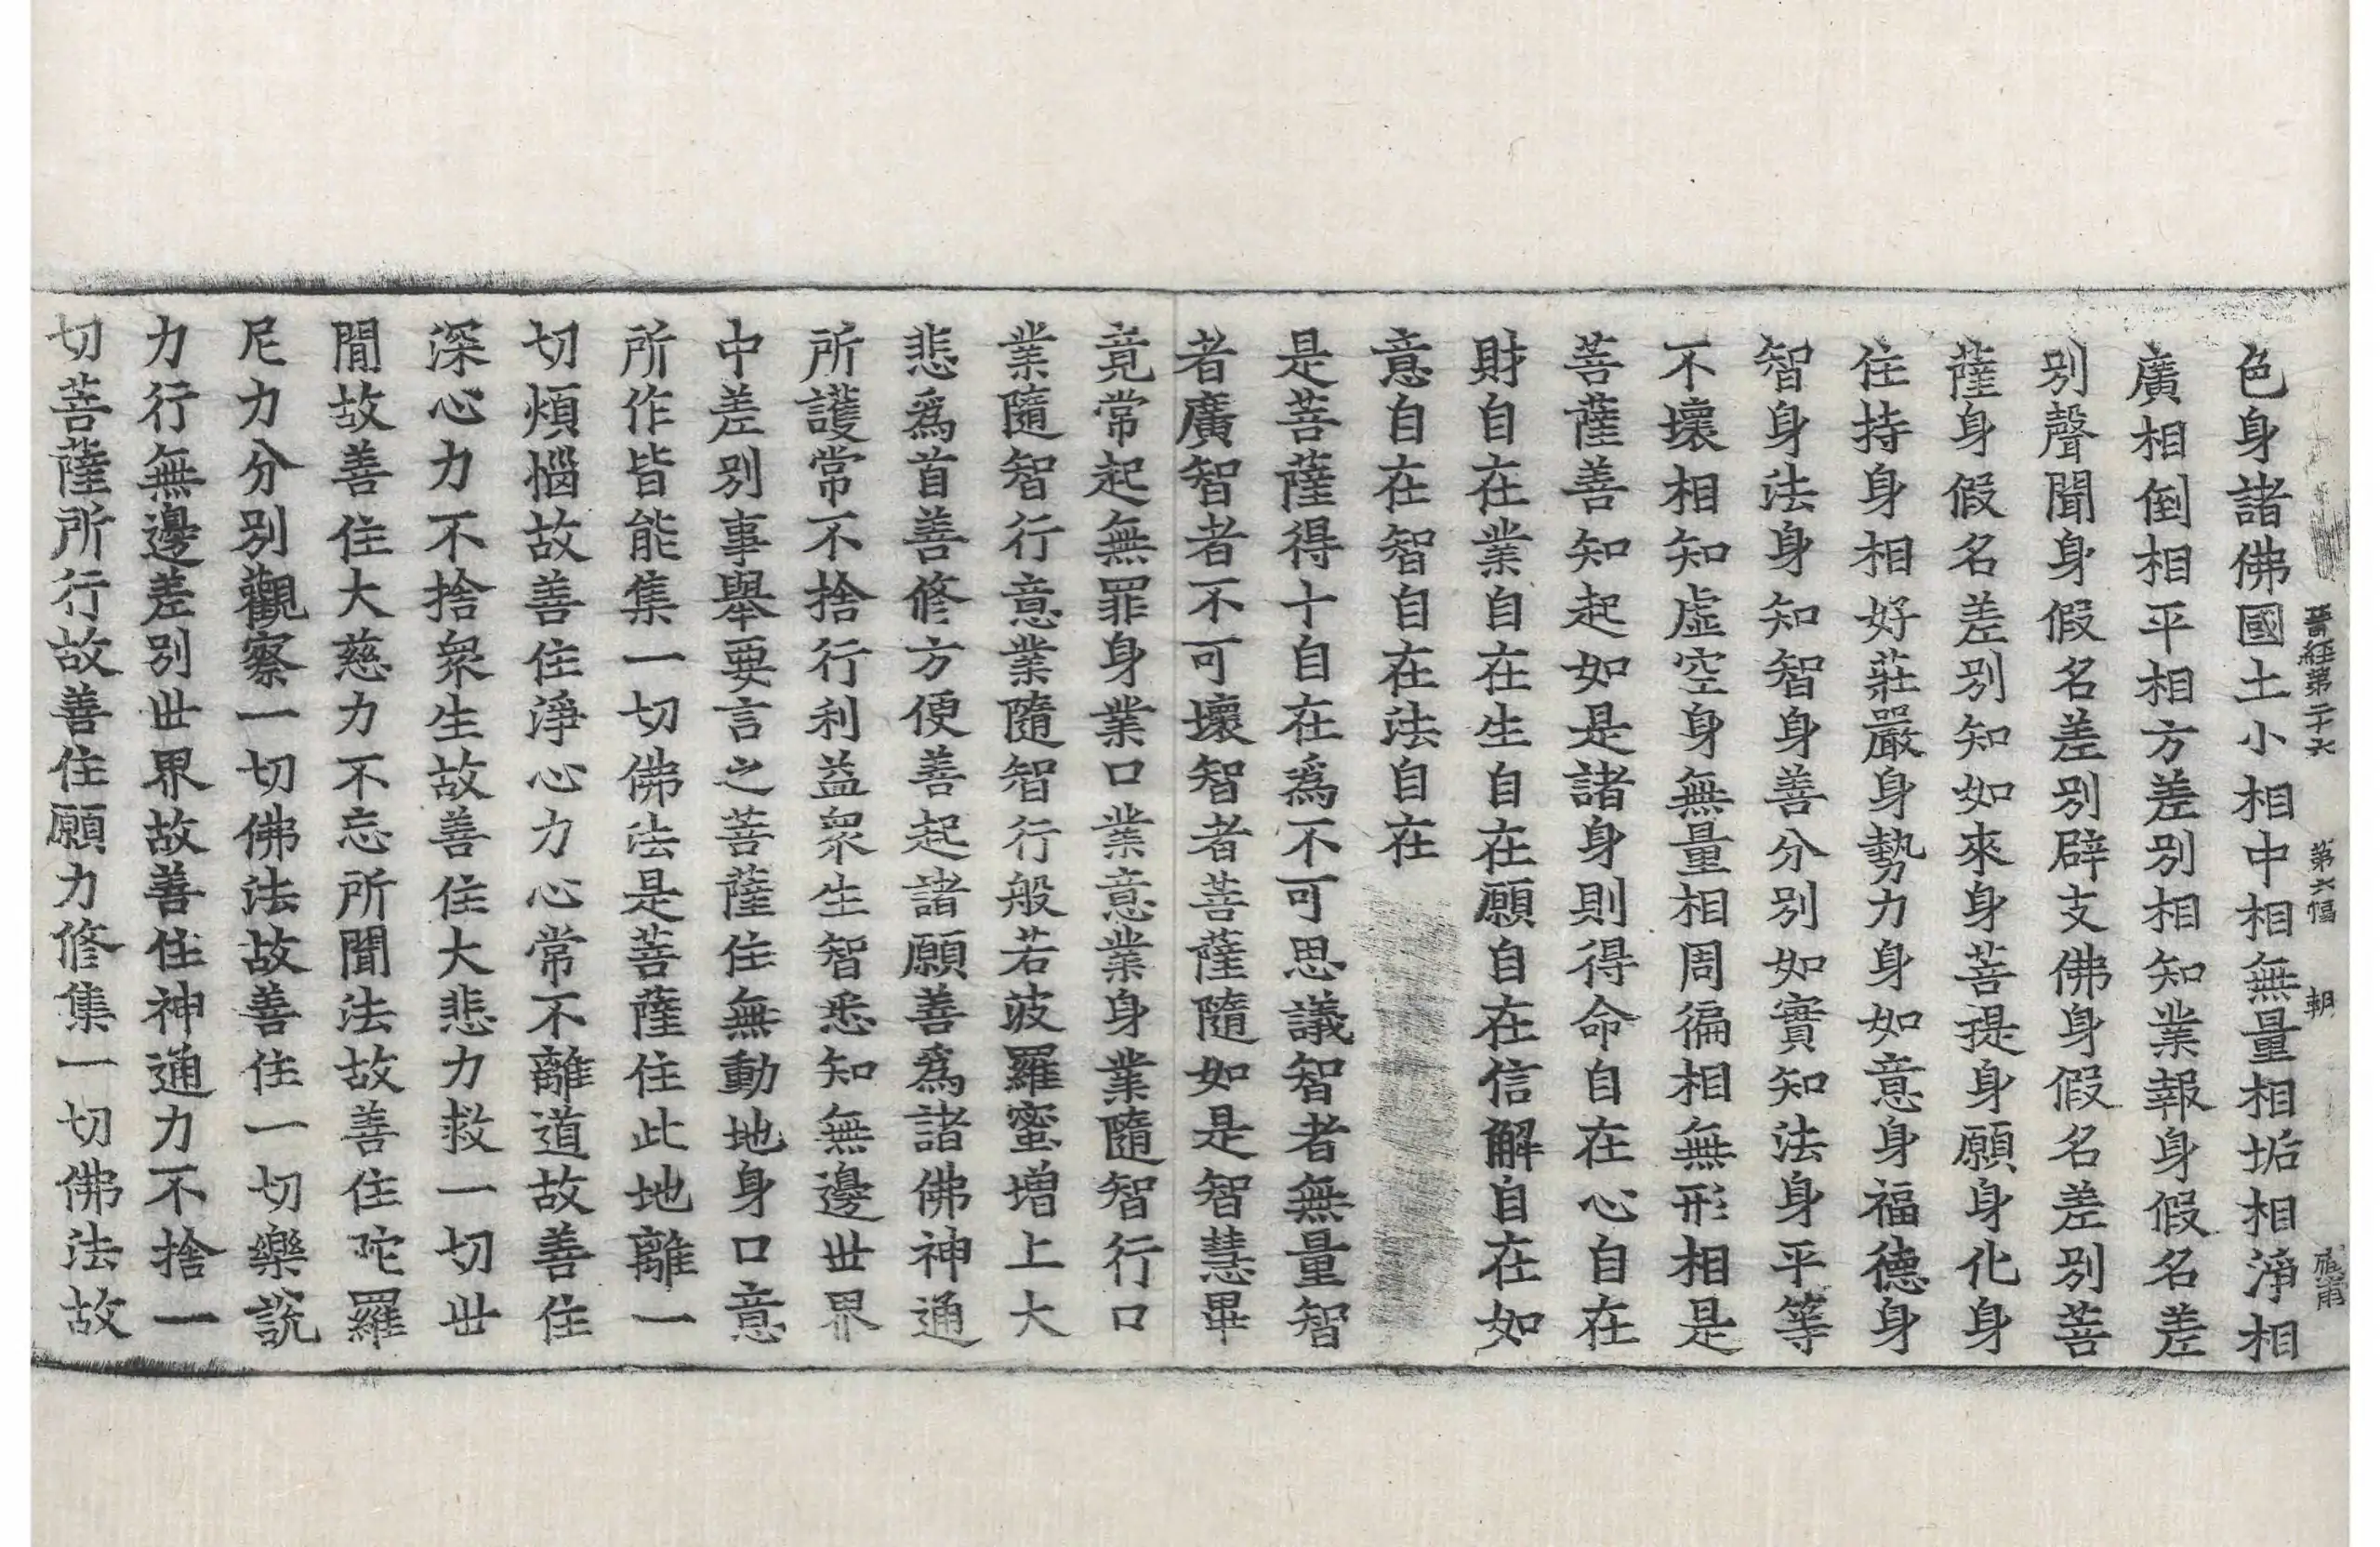 晉經第二十六 第六幅 朝
色身諸佛國土小相中相無量相垢相淨相
廣相倒相平相方差別相知業報身假名差
別聲聞身假名差別辟支佛身假名差別菩
薩身假名差別知如來身菩提身願身化身
住持身相好莊嚴身勢力身如意身福德身
智身法身知智身善分別如實知法身平等
不壞相知虛空身無量相周徧相無形相是
菩薩善知起如是諸身則得命自在心自在
財自在業自在生自在願自在信解自在如
意自在智自在法自在
是菩薩得十自在爲不可思議智者無量智
者廣智者不可壞智者菩薩隨如是智慧畢
竟常起無罪身業口業意業身業隨智行口
業隨智行意業隨智行般若波羅蜜增上大
悲爲首善修方便善起諸願善爲諸佛神通
所護常不捨行利益眾生智悉知無邊世界
中差別事舉要言之菩薩住無動地身口意
所作皆能集一切佛法是菩薩住此地離一
切煩惱故善住淨心力心常不離道故善住
深心力不捨眾生故善住大悲力救一切世
間故善住大慈力不忘所聞法故善住陀羅
尼力分別觀察一切佛法故善住一切樂說
力行無邊差別世界故善住神通力不捨一
切菩薩所行故善住願力修集一切佛法故